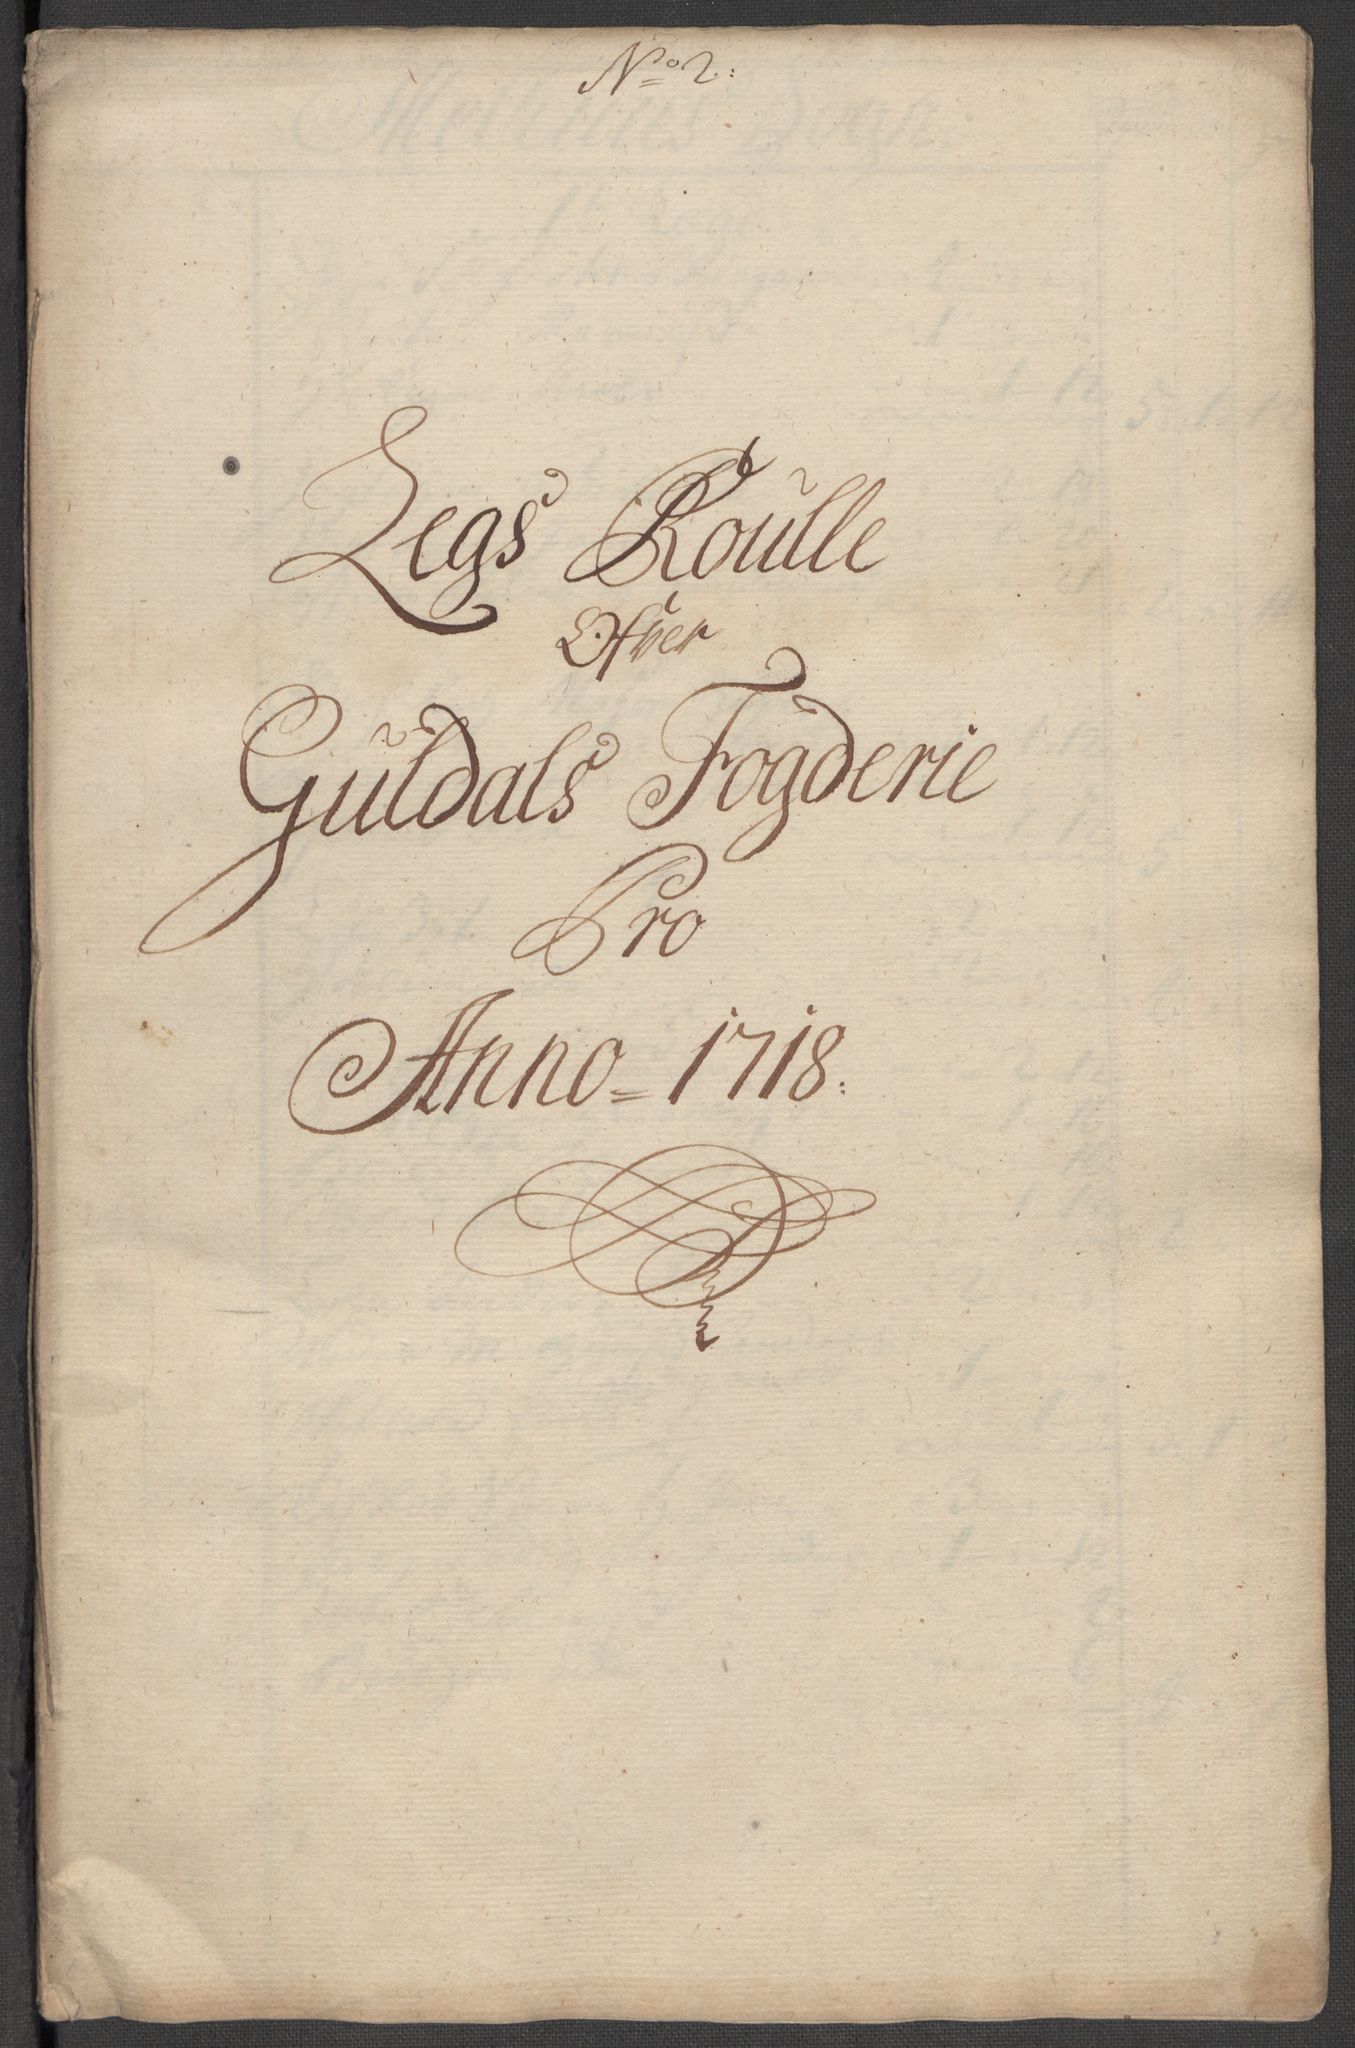 No 2:
Legs Roulle
Ofver
Guldals Fogderie
Pro
Anno = 1718: